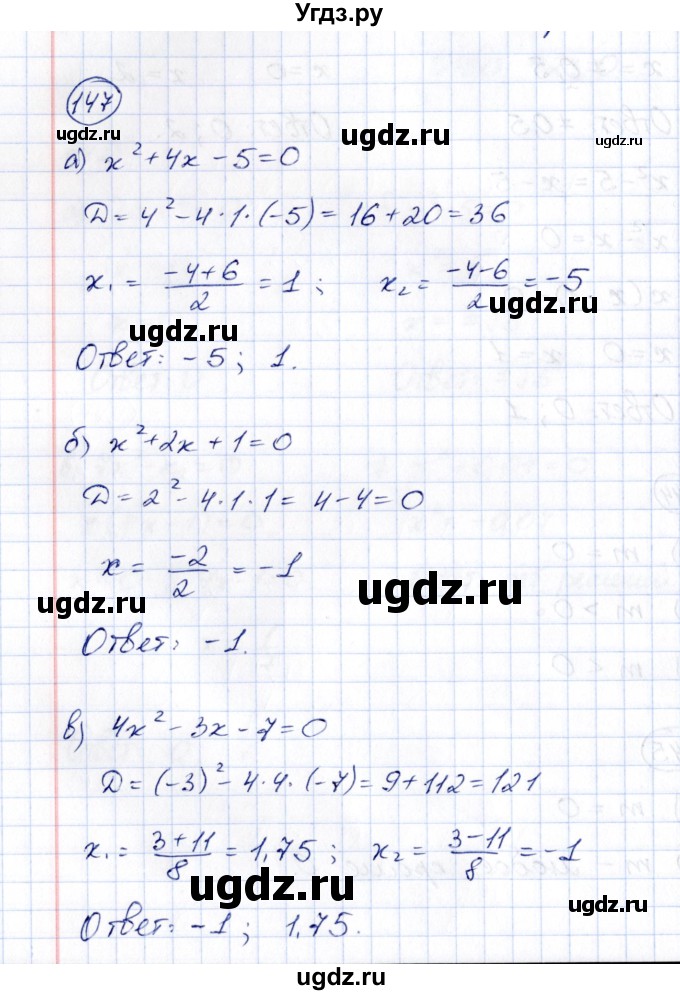 Угдз.ру
147
ugdz.ru
ugdz.ru
ugdz.ru
а) x² + 4x - 5 = 0
Д = 4² - 4 · 1 · (-5) = 16 + 20 = 36
x₁ = (-4+6)/2 = 1 ; x₂ = (-4-6)/2 = -5
ugdz.ru
ugdz.ru
Ответ: -5 ; 1.
б) x² + 2x + 1 = 0
Д = 2² - 4 · 1 · 1 = 4 - 4 = 0
x = -2/2 = -1
ugdz.ru
ugdz.ru
Ответ: -1.
в) 4x² - 3x - 7 = 0
Д = (-3)² - 4 · 4 · (-7) = 9 + 112 = 121
x₁ = (3+11)/8 = 1,75 ; x₂ = (3-11)/8 = -1
ugdz.ru
ugdz.ru
Ответ: -1 ; 1,75.
ugdz.ru